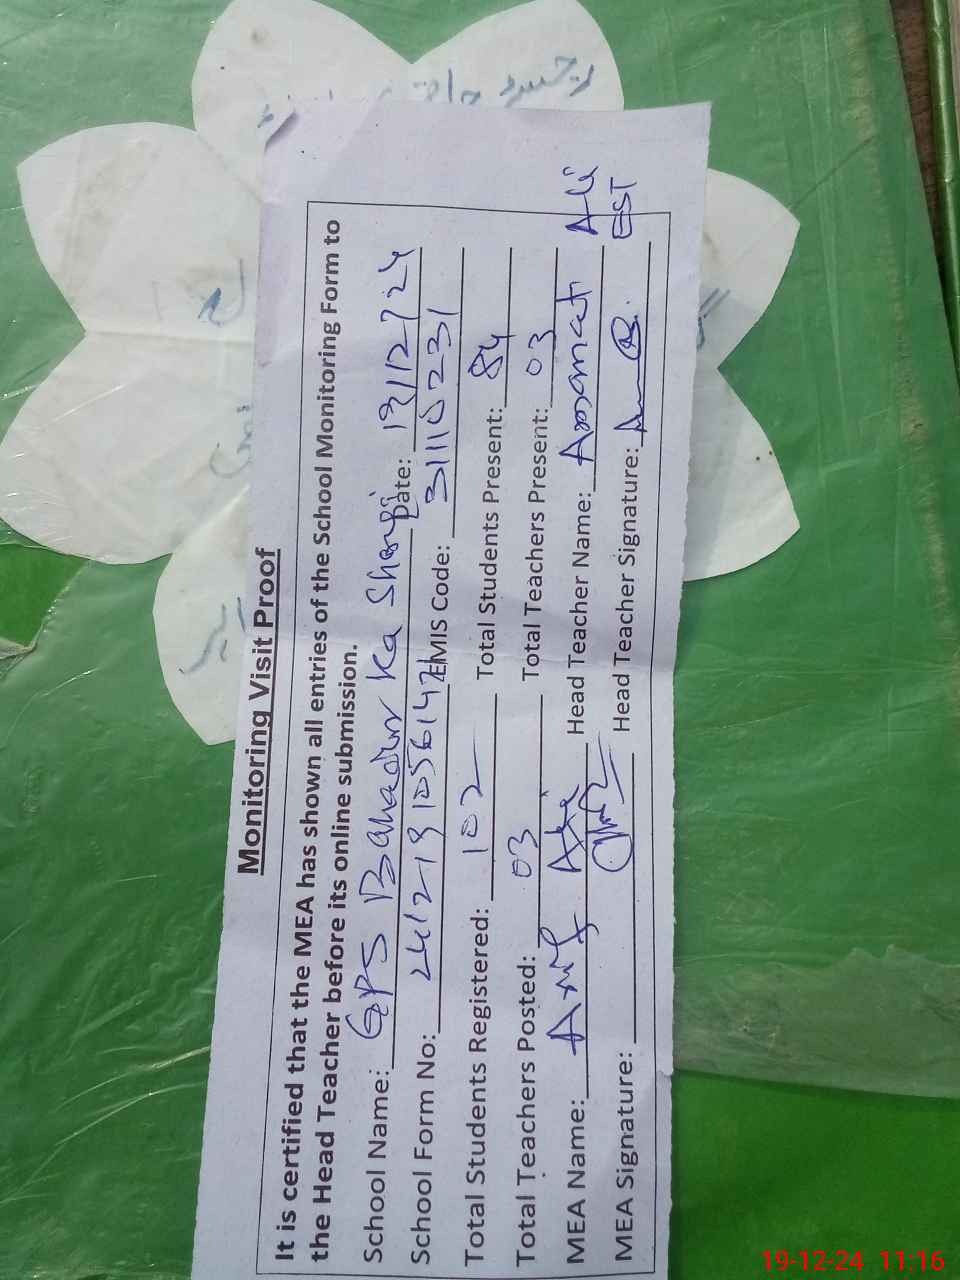 Monitoring Visit Proof
It is certified that the MEA has shown all entries of the School Monitoring Form to
the Head Teacher before its online submission.
School Name: GPS Bahadur Ka Shergi Date: 19/12/24
School Form No: 24121910561421 EMIS Code: 31110231
Total Students Registered: 102 Total Students Present: 84
Total Teachers Posted: 03 Total Teachers Present: 03
MEA Name: Arif Head Teacher Name: Azamat Ali
MEA Signature: Head Teacher Signature: EST
رجسٹر
19-12-24 11:16